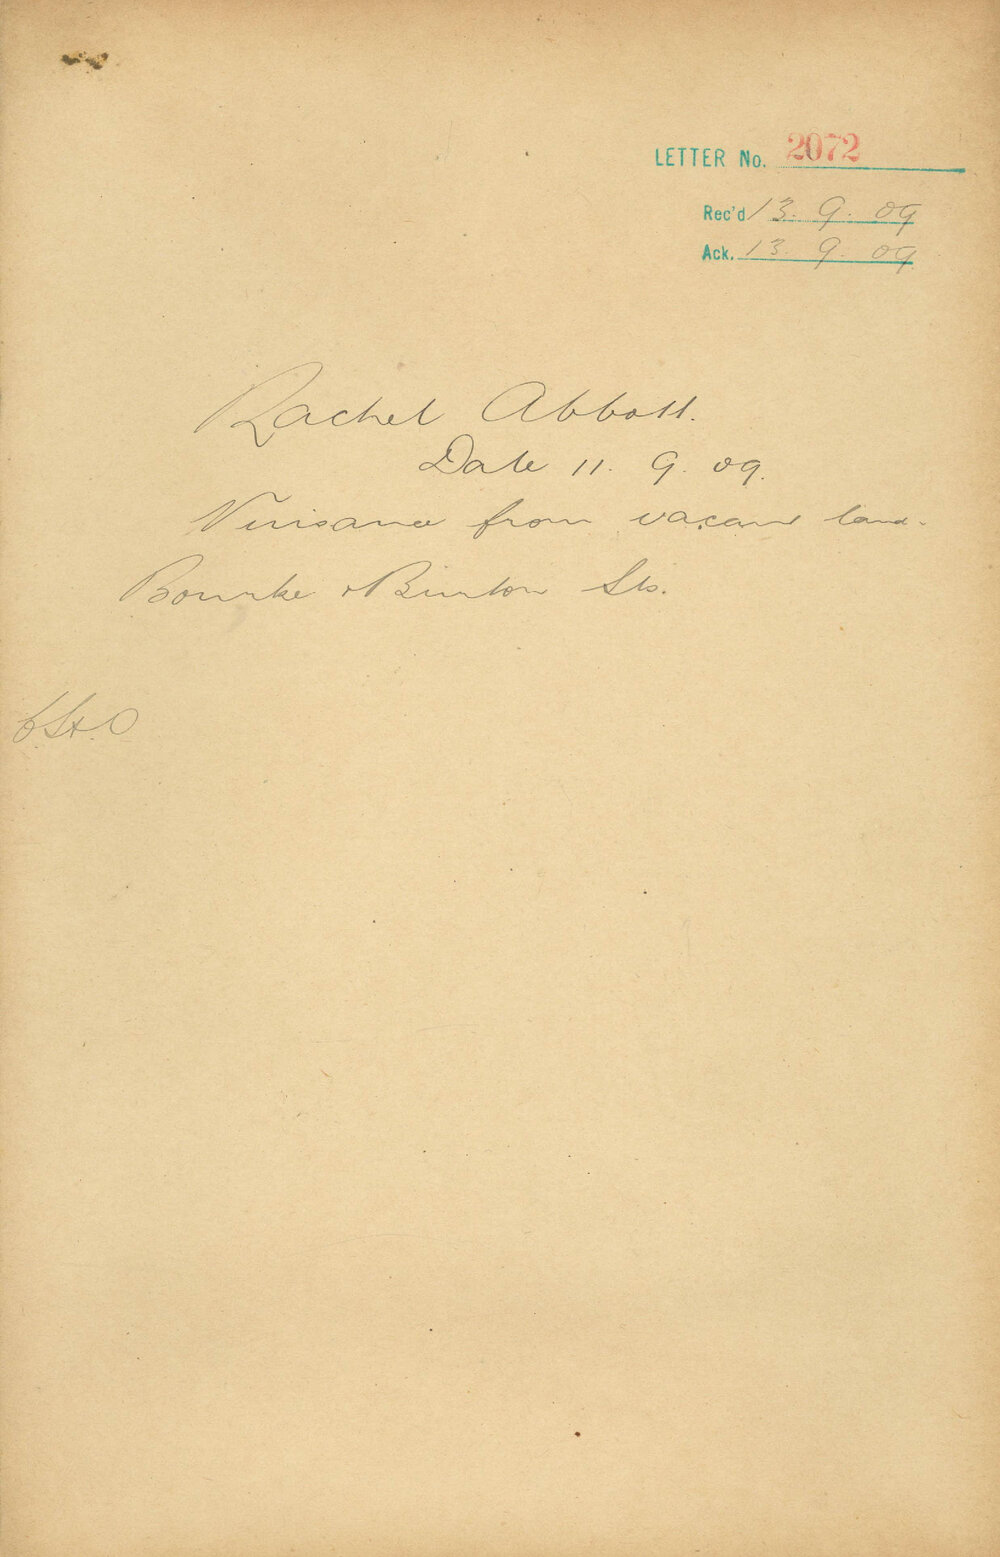 LETTER No. 2072
Rec'd 13. 9. 09
Ack. 13. 9. 09
Rachel Abbott.
Date 11. 9. 09.
Nuisance from vacant land.
Bourke & Burton Sts.